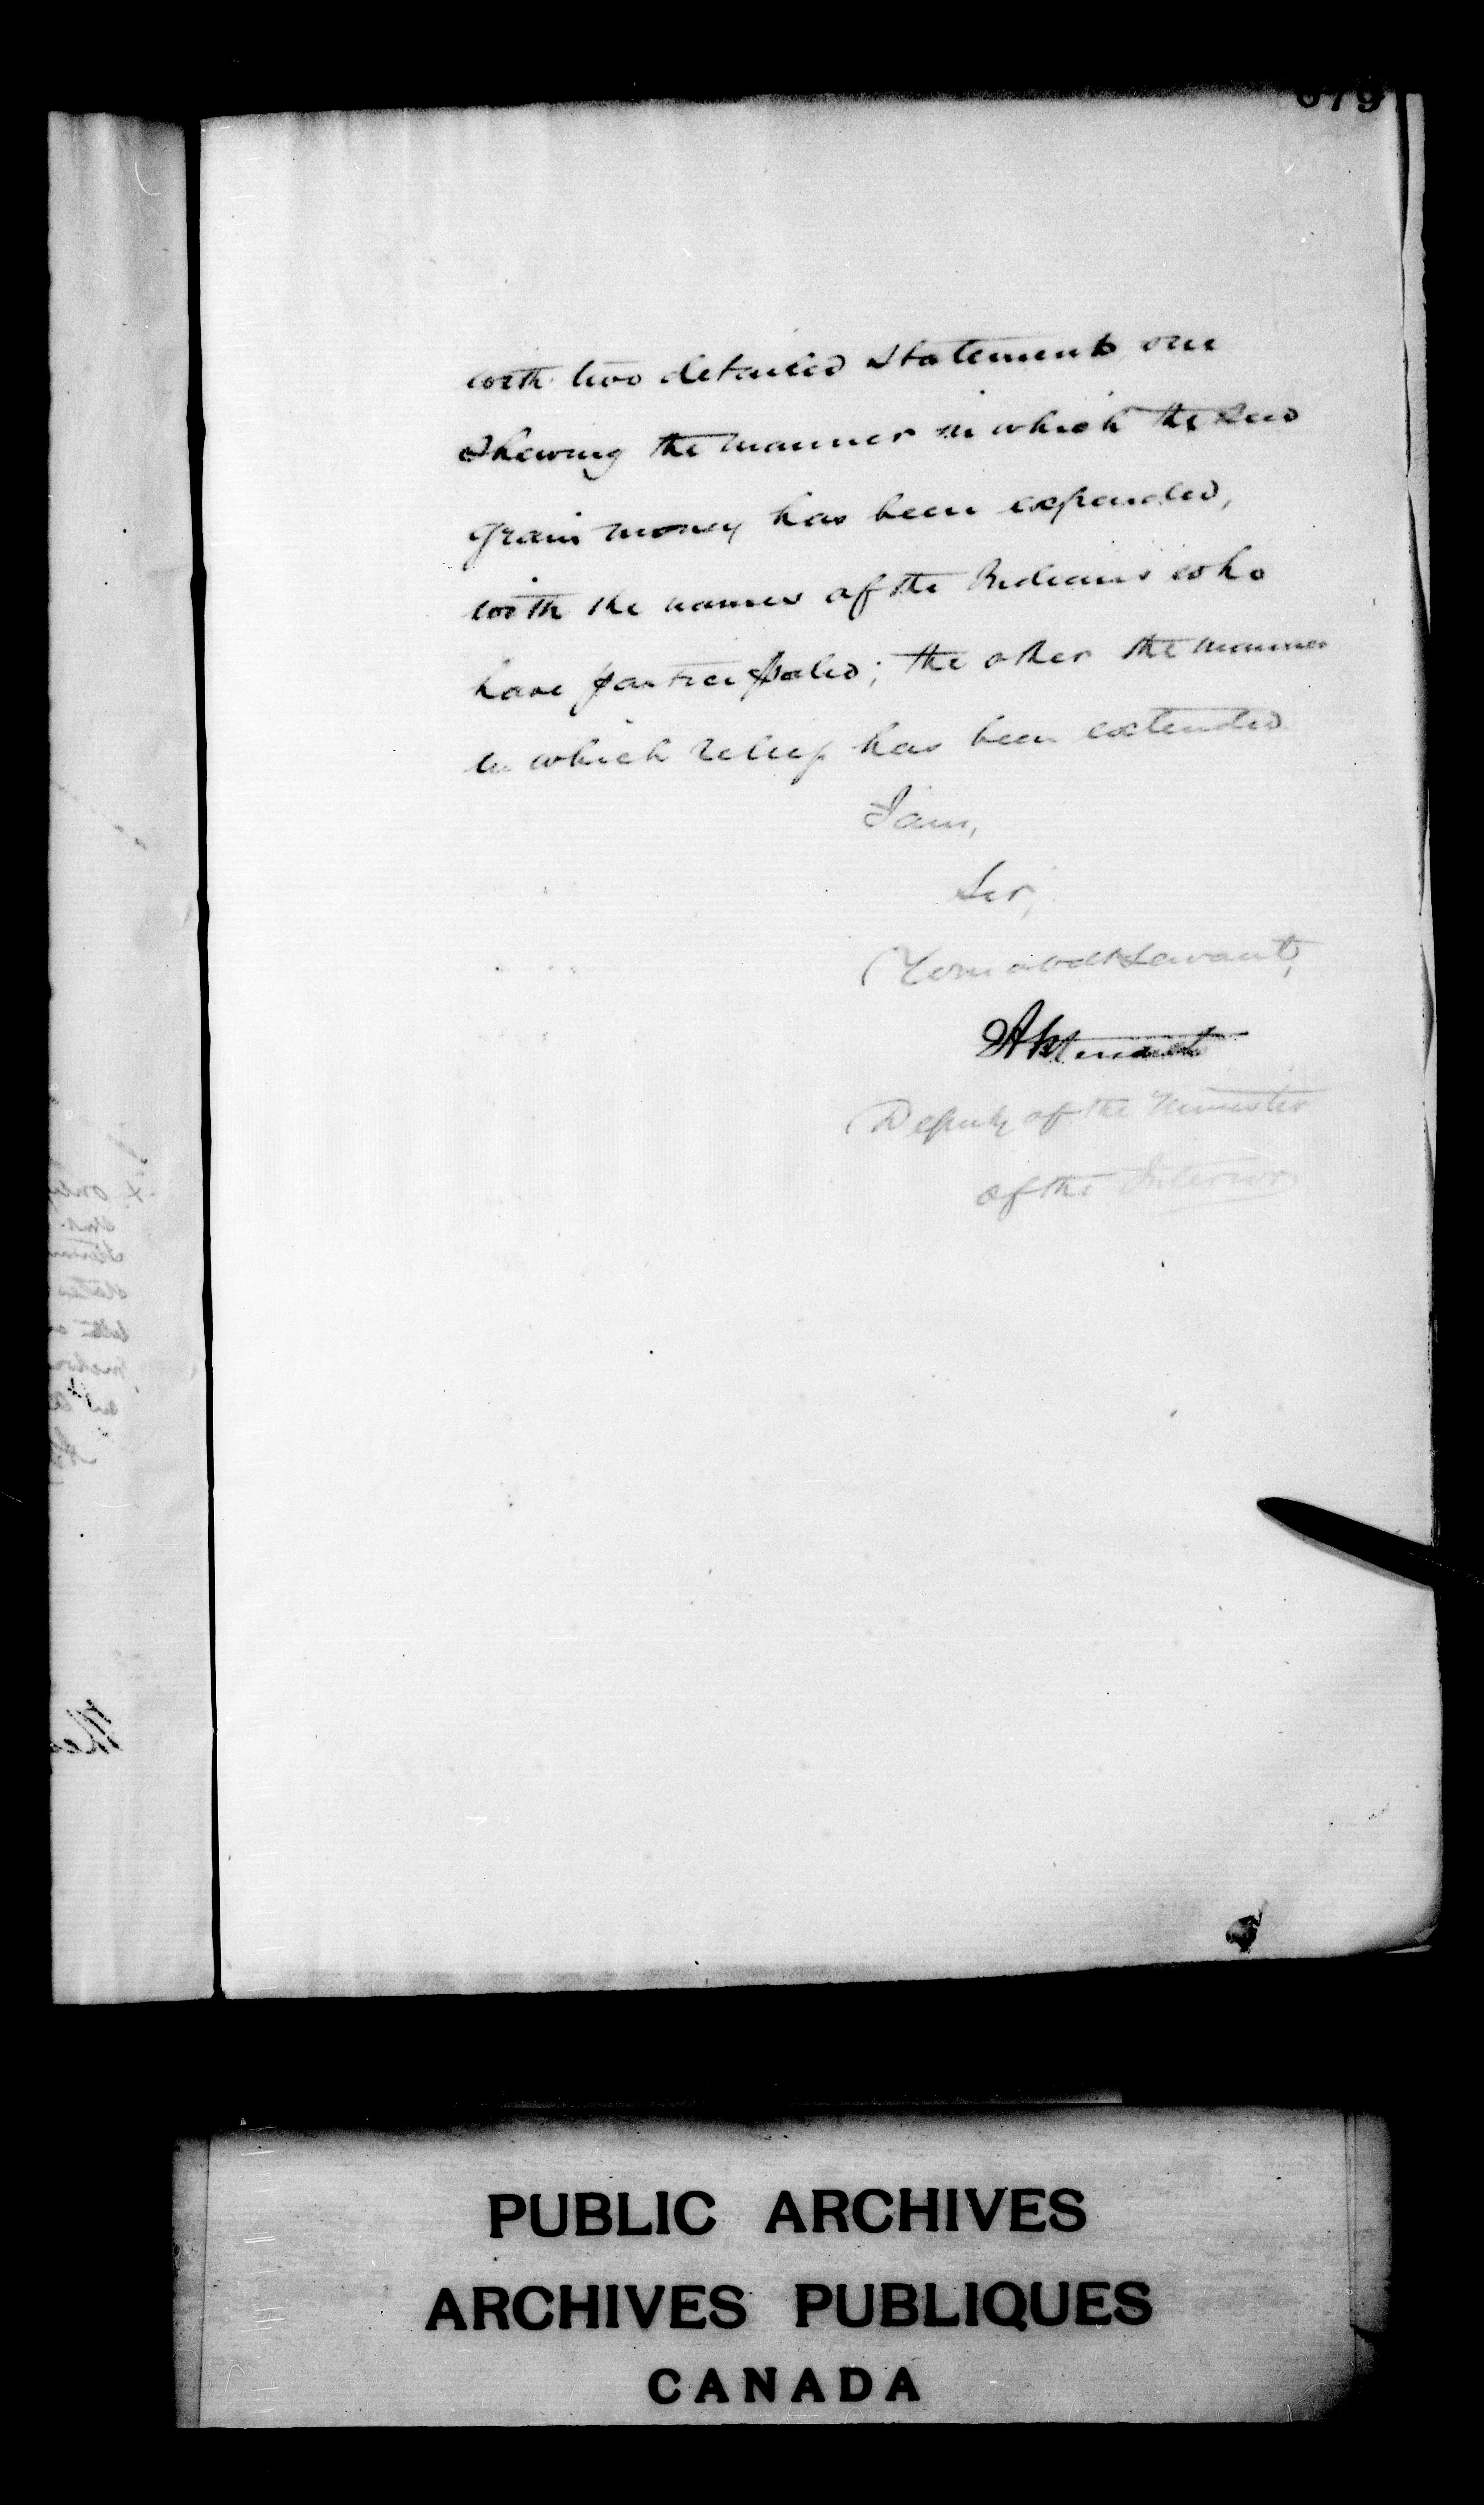 679
with two detailed Statements one
Shewing the manner in which the Seed
grain money has been expended,
with the names of the Indians who
have participated; the other the manner
in which relief has been extended
I am,
Sir,
Your obedt Servant,
Deputy of the Minister
of the Interior
PUBLIC ARCHIVES
ARCHIVES PUBLIQUES
CANADA